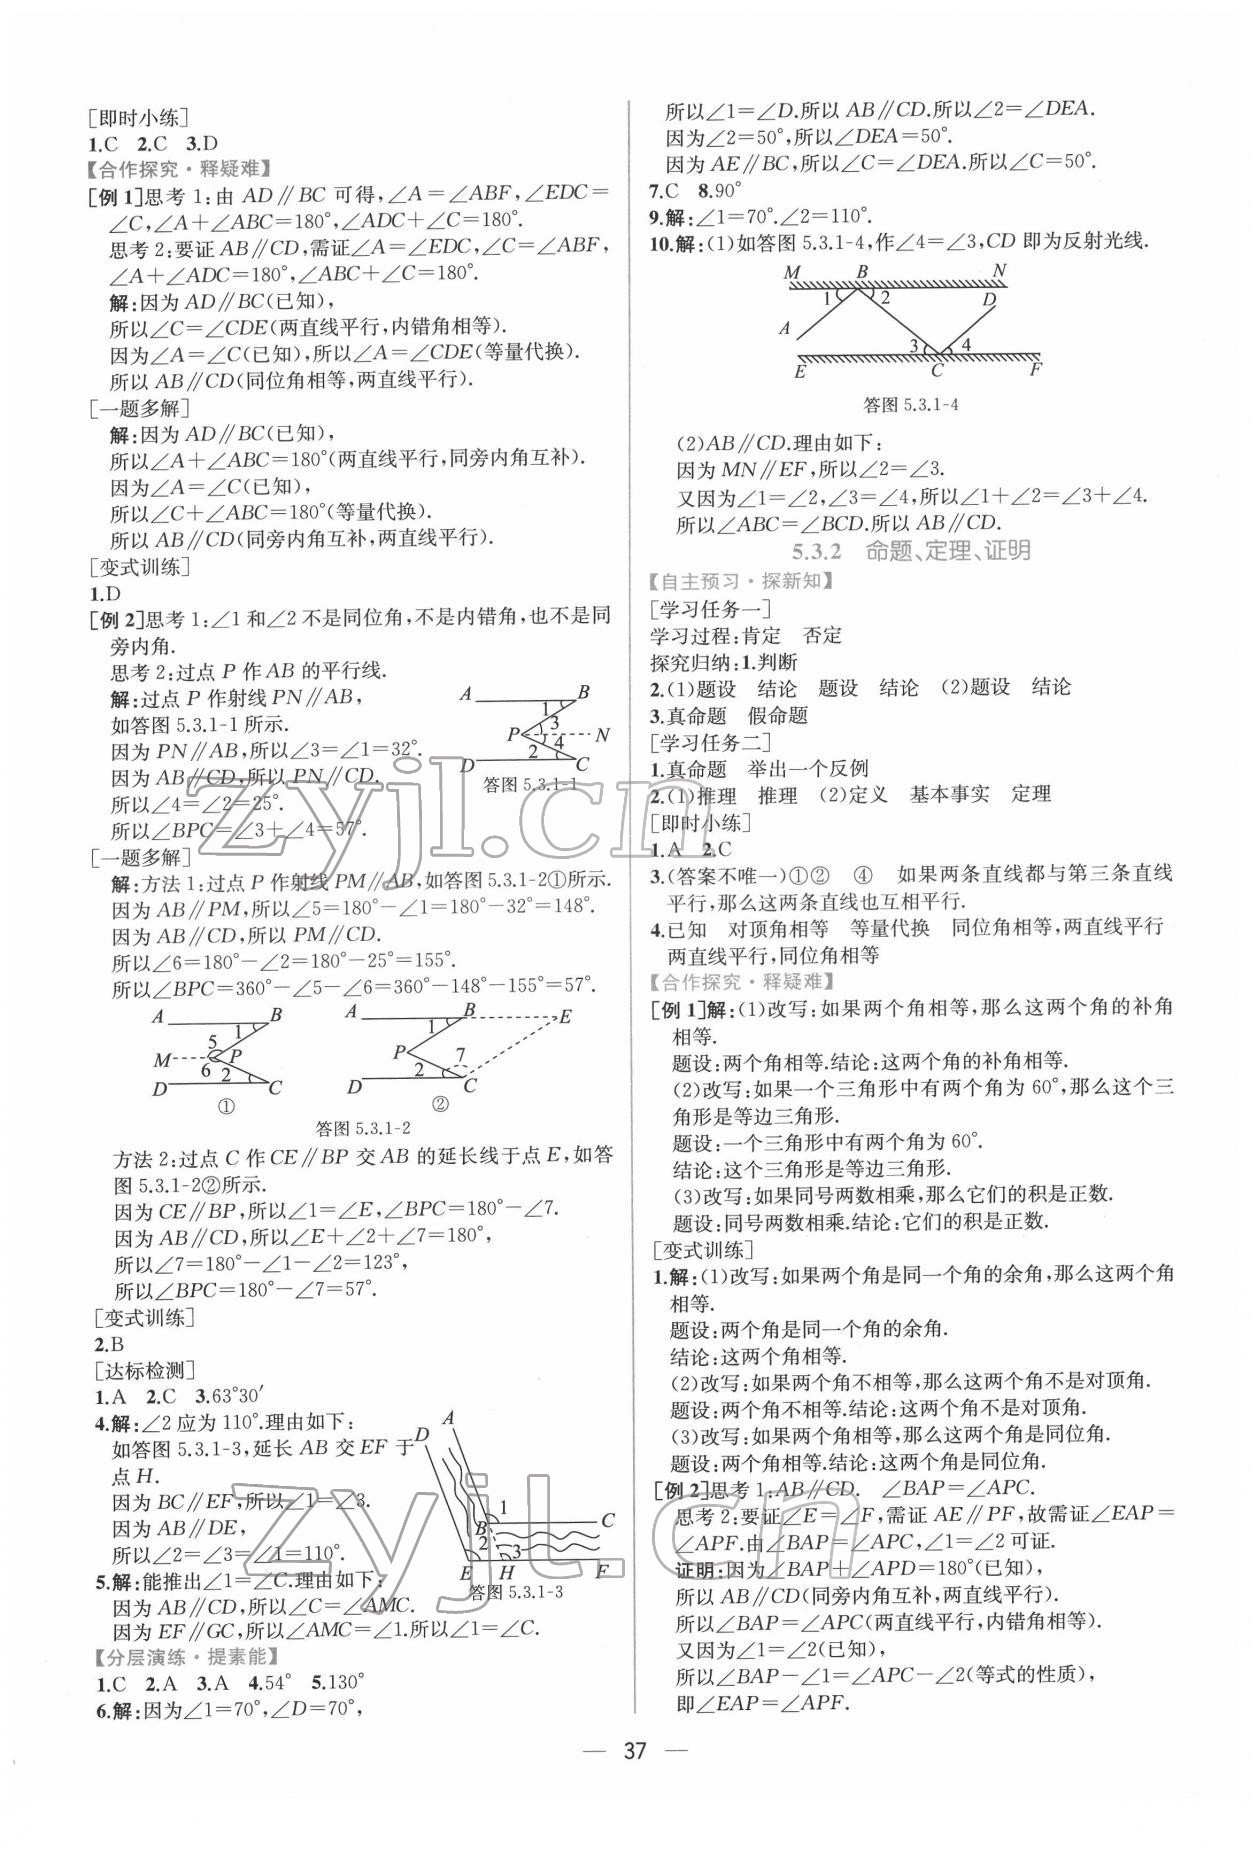 [即时小练]
1.C 2.C 3.D
【合作探究·释疑难】
[例1]思考1:由 AD∥BC 可得,∠A=∠ABF,∠EDC=
∠C,∠A+∠ABC=180°,∠ADC+∠C=180°.
思考2:要证AB∥CD,需证∠A=∠EDC,∠C=∠ABF,
∠A+∠ADC=180°,∠ABC+∠C=180°.
解:因为AD∥BC(已知),
所以∠C=∠CDE(两直线平行,内错角相等).
因为∠A=∠C(已知),所以∠A=∠CDE(等量代换).
所以AB∥CD(同位角相等,两直线平行).
[一题多解]
解:因为AD∥BC(已知),
所以∠A+∠ABC=180°(两直线平行,同旁内角互补).
因为∠A=∠C(已知),
所以∠C+∠ABC=180°(等量代换).
所以AB∥CD(同旁内角互补,两直线平行).
[变式训练]
1.D
[例2]思考1:∠1和∠2不是同位角,不是内错角,也不是同
旁内角.
思考2:过点P作AB的平行线.
解:过点P作射线PN∥AB,
如答图5.3.1-1所示.
因为PN∥AB,所以∠3=∠1=32°.
因为AB∥CD,所以PN∥CD.
所以∠4=∠2=25°.
所以∠BPC=∠3+∠4=57°.
A B
1
3
P N
4
2
D C
答图5.3.1-1
[一题多解]
解:方法1:过点P作射线PM∥AB,如答图5.3.1-2①所示.
因为AB∥PM,所以∠5=180°-∠1=180°-32°=148°.
因为AB∥CD,所以PM∥CD.
所以∠6=180°-∠2=180°-25°=155°.
所以∠BPC=360°-∠5-∠6=360°-148°-155°=57°.
A B
1
5
M P
6 2
D C
①
A B E
1
P 7
2
D C
②
答图5.3.1-2
方法2:过点C作CE∥BP交AB的延长线于点E,如答
图5.3.1-2②所示.
因为CE∥BP,所以∠1=∠E,∠BPC=180°-∠7.
因为AB∥CD,所以∠E+∠2+∠7=180°,
所以∠7=180°-∠1-∠2=123°,
所以∠BPC=180°-∠7=57°.
[变式训练]
2.B
[达标检测]
1.A 2.C 3.63°30′
4.解:∠2应为110°.理由如下:
如答图5.3.1-3,延长AB交EF于
点H.
因为BC∥EF,所以∠1=∠3.
因为AB∥DE,
所以∠2=∠3=∠1=110°.
A
D
1
B C
2
3
E H F
答图5.3.1-3
5.解:能推出∠1=∠C.理由如下:
因为AB∥CD,所以∠C=∠AMC.
因为EF∥GC,所以∠AMC=∠1.所以∠1=∠C.
【分层演练·提素能】
1.C 2.A 3.A 4.54° 5.130°
6.解:因为∠1=70°,∠D=70°,
所以∠1=∠D.所以AB∥CD.所以∠2=∠DEA.
因为∠2=50°,所以∠DEA=50°.
因为AE∥BC,所以∠C=∠DEA.所以∠C=50°.
7.C 8.90°
9.解:∠1=70°.∠2=110°.
10.解:(1)如答图5.3.1-4,作∠4=∠3,CD即为反射光线.
M B N
1 2 D
A
3 4
E C F
答图5.3.1-4
(2)AB∥CD.理由如下:
因为MN∥EF,所以∠2=∠3.
又因为∠1=∠2,∠3=∠4,所以∠1+∠2=∠3+∠4.
所以∠ABC=∠BCD.所以AB∥CD.
5.3.2 命题、定理、证明
【自主预习·探新知】
[学习任务一]
学习过程:肯定 否定
探究归纳:1.判断
2.(1)题设 结论 题设 结论 (2)题设 结论
3.真命题 假命题
[学习任务二]
1.真命题 举出一个反例
2.(1)推理 推理 (2)定义 基本事实 定理
[即时小练]
1.A 2.C
3.(答案不唯一)①② ④ 如果两条直线都与第三条直线
平行,那么这两条直线也互相平行.
4.已知 对顶角相等 等量代换 同位角相等,两直线平行
两直线平行,同位角相等
【合作探究·释疑难】
[例1]解:(1)改写:如果两个角相等,那么这两个角的补角
相等.
题设:两个角相等.结论:这两个角的补角相等.
(2)改写:如果一个三角形中有两个角为60°,那么这个三
角形是等边三角形.
题设:一个三角形中有两个角为60°.
结论:这个三角形是等边三角形.
(3)改写:如果同号两数相乘,那么它们的积是正数.
题设:同号两数相乘.结论:它们的积是正数.
[变式训练]
1.解:(1)改写:如果两个角是同一个角的余角,那么这两个角
相等.
题设:两个角是同一个角的余角.
结论:这两个角相等.
(2)改写:如果两个角不相等,那么这两个角不是对顶角.
题设:两个角不相等.结论:这两个角不是对顶角.
(3)改写:如果两个角相等,那么这两个角是同位角.
题设:两个角相等.结论:这两个角是同位角.
[例2]思考1:AB∥CD. ∠BAP=∠APC.
思考2:要证∠E=∠F,需证AE∥PF,故需证∠EAP=
∠APF.由∠BAP=∠APC,∠1=∠2可证.
证明:因为∠BAP+∠APD=180°(已知),
所以AB∥CD(同旁内角互补,两直线平行).
所以∠BAP=∠APC(两直线平行,内错角相等).
又因为∠1=∠2(已知),
所以∠BAP-∠1=∠APC-∠2(等式的性质),
即∠EAP=∠APF.
— 37 —
zyjl.cn
zyjl.cn